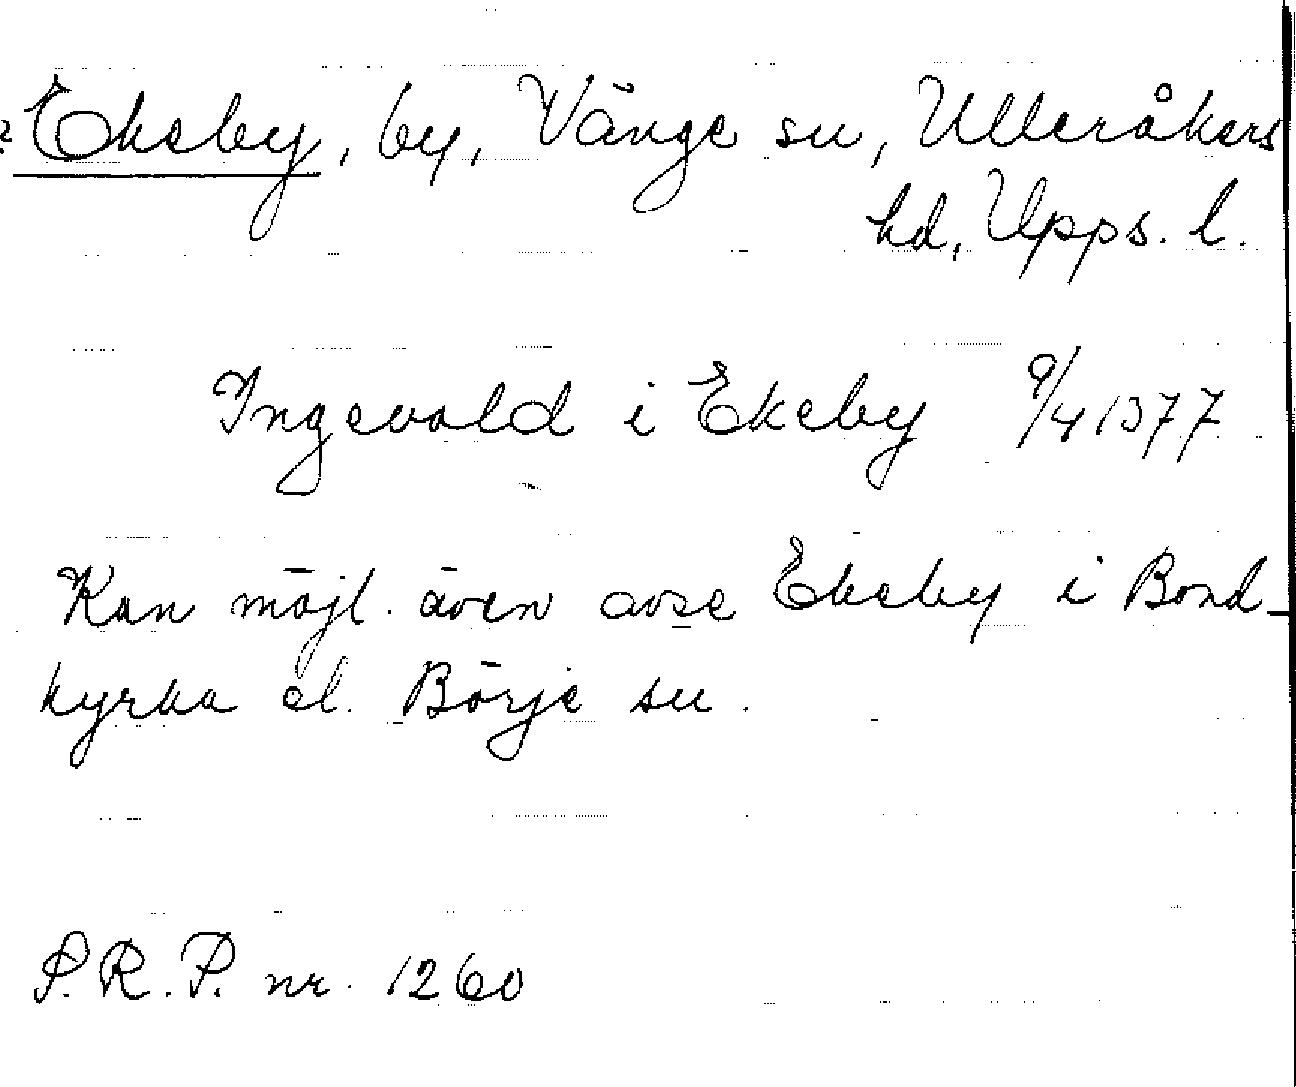 ? Ekeby, by, Vänge sn, Ulleråkers
hd, Upps. l.
Ingevald i Ekeby 9/4 1377
Kan möjl. även avse Ekeby i Bond-
kyrka el. Börje sn.
S.R.P. nr. 1260